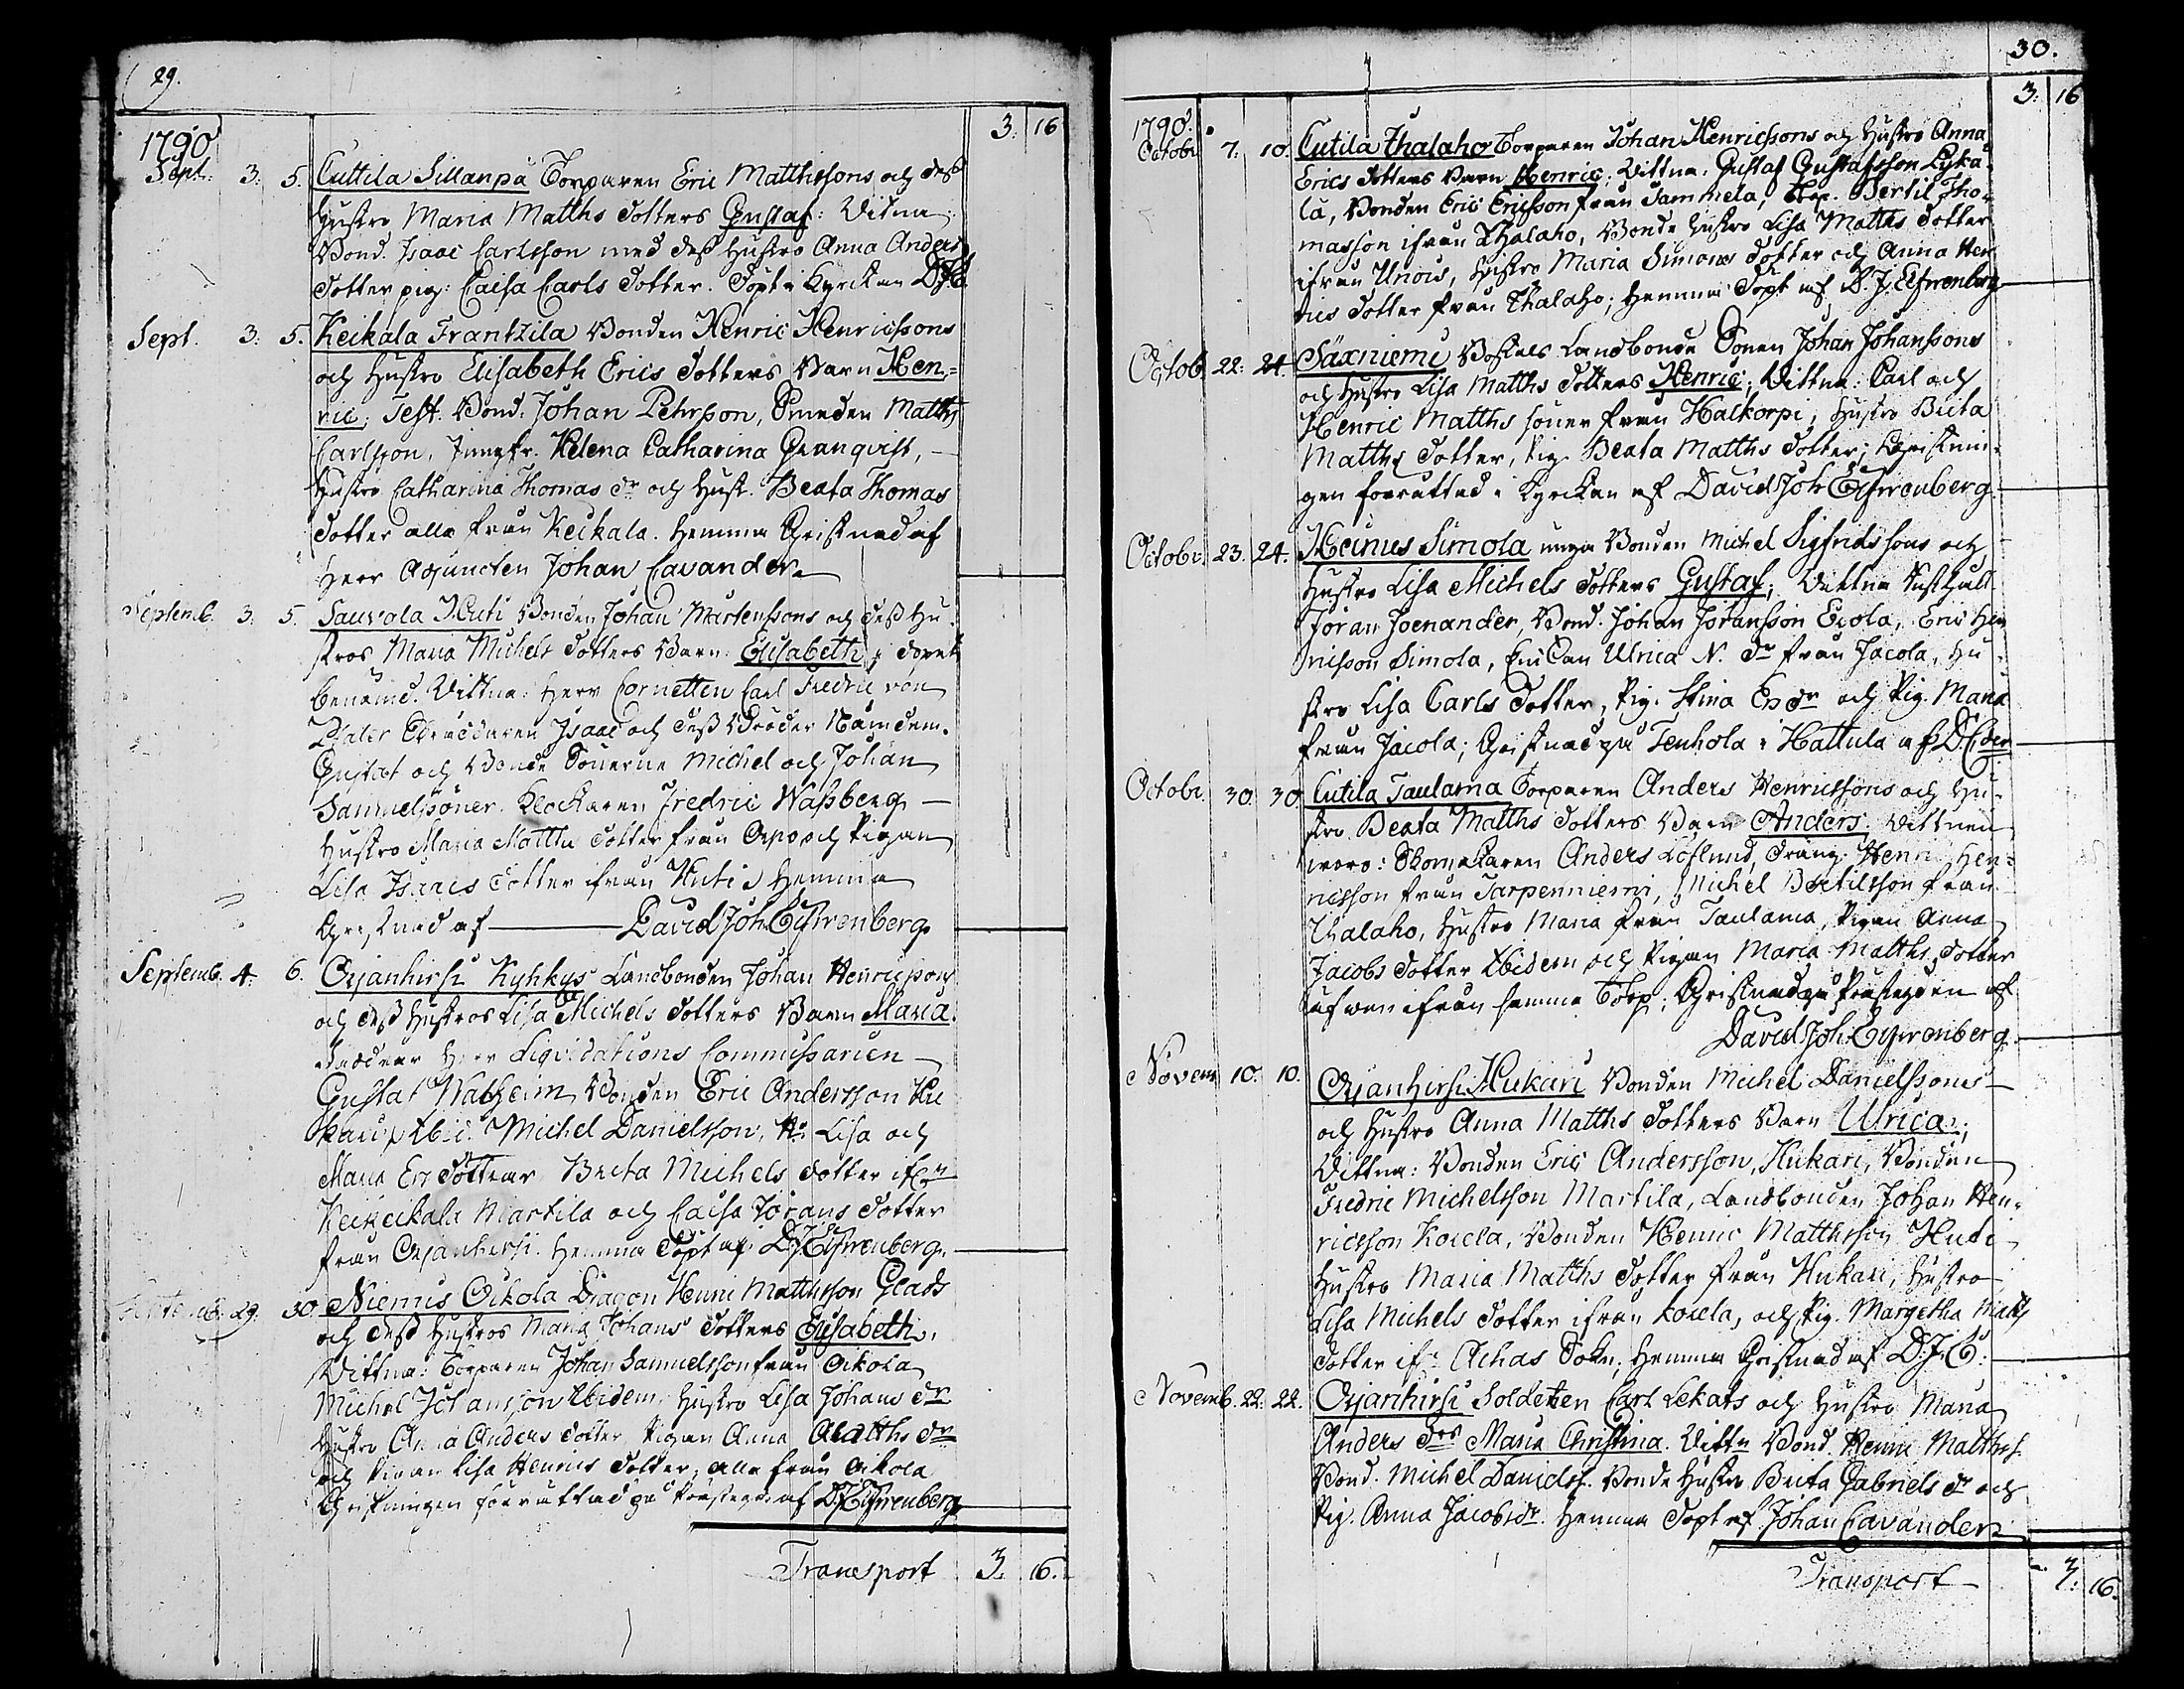 29.
3. 16
1790
Sept. 3. 5. Cuttila Sillanpä Torparen Eric Matthssons och dess
hustro Maria Matths dotters Gustaf: Vitna:
Bond. Isaac Carlsson med dess hustro Anna Anders
dotter pig. Caisa Carls dotter. Döpt i Kyrckan DJE.
Sept. 3. 5. Keikala Frantzila Bonden Henric Henricssons
och hustro Elisabeth Erics dotters Barn Hen-
ric; Test. Bond. Johan Pehrsson, Smeden Matths
Carlsson, Jungfr. Helena Catharina Granqvist,
hustro Catharina Thomas dr och hust. Beata Thomas
dotter alla från Keikala. hemma Christnad af
Herr Adjuncten Johan Cavander.
Septemb. 3. 5. Sauvola Huti Bonden Johan Mårtenssons och dess hu-
stros Maria Michels dotters Barn: Elisabeth;
benämd. Vittna: Herr Cornetten Carl Fredric von
Isaac och dess Broder Nämdem.
Gustaf och Bonde Sönerne Michel och Johan
Samuelssöner. Klockaren Fredric Wassberg
hustro Maria Matths dotter från och Pigan
Lisa Isaacs dotter ifrån Huti, hemma
Christnad af David Joh. Elfwenberg.
Septemb. 4. 6. Ojanhirsi Kyhkys Landbonden Johan Henricssons
och dess hustros Lisa Michels dotters Barn Maria.
Herr Liqvidations Commissarien
Gustaf Bonden Eric Andersson Hu
kari, Ibid. Michel Danielsson, Ho. Lisa och
Maria Ers döttrar Brita Michels dotter ifrn
Keikeikala Martila och Caisa Jörans dotter
från Ojanhirsi. hemma Döpt af D.J. Elfwenberg.
29. 30. Niemis Oikola Dragon Henric Matthsson Glads
och dess hustros Maria Johans dotters Elisabeth.
Vittna: Torparen Johan Samuelsson från Oikola
Michel Johansson Ibidem, hustro Lisa Johans dr
hustro Anna Anders dotter Pigan Anna Matths dr
och Pigan Lisa Henrics dotter, alla från Oikola
Christningen förrättad på Prästeg. af D.J. Elfwenberg.
Transport 3. 16.
30.
3. 16
1790.
Octobr. 7. 10. Cutila Thalaho Torparen Johan Henricssons och hustro Anna
Erics dotters Barn Henric; Vittna. Gustaf Gustafsson
lä, Bonden Eric Ericsson från Sammela, Torp. Bertil Tho-
masson ifrån Thalaho, Bonde hustro Lisa Matths dotter
ifrån Unois, hustro Maria Simons dotter och Anna Hen
rics dotter från Thalaho; hemma Döpt af D.J. Elfwenberg
Octob. 22. 24. Säxniemi Bostels Landbonde Sonen Johan Johanssons
och hustro Lisa Matths dotters Henric; Vittna: Carl och
Henric Matths söner från Halkorpi, hustro Brita
Matths dotter, Pig. Beata Matths dotter; Christnin-
gen förrättad i Kyrckan af David Joh Elfwenberg
Octobr. 23. 24. Heinus Simola unga Bonden Michel Sigfridssons och
hustro Lisa Michels dotters Gustaf; Vittna Rusthåll.
Jöran Joenander, Bond. Johan Johansson Eeola, Eric Hen
ricsson Simola, Enckan Ulrica N. dr från Jacola, hu
stro Lisa Carls dotter, Pig. Stina Ers dr och Pig. Maria
från Jacola; Christnad på Tenhola i Hattula af
Octobr. 30 30 Cutila Taulama Torparen Anders Henricssons och hu-
stro Beata Matths dotters Barn Anders. Vittnen
woro: Skomakaren Anders Löflund, dräng. Henric Hen-
ricsson från Tarpenniemi, Michel Bertilsson från
Thalaho, hustro Maria från Taulama, Pigan Anna
Jacobs dotter Ibidem och Pigan Maria Matths dotter
äfwen ifrån samma Torp; Christnad på Prästegården af
David Joh. Elfwenberg.
Novem. 10. 10. Ojanhirsi Hukari Bonden Michel Danielssons
och hustro Anna Matths dotters Barn Ulrica;
Vittna: Bonden Eric Andersson, Hukari, Bonden
Fredric Michelsson Martila, Landbonden Johan Hen-
ricsson Koiela, Bonden Henric Matthsson Huti
hustro Maria Matths dotter från Hukari, hustro
Lisa Michels dotter ifrån Koiela, och Pig. Margetha Mick
dotter ifr. Achas Sokn; hemma Christnad af D.J.E.
Novemb. 22. 22. Ojanhirsi Soldaten Carl Lekats och hustro Maria
Anders drs Maria Christina. Vittn Bond. Henric Matthss.
Bond. Michel Danielss. Bonde hustro Brita Gabriels dr och
Pig. Anna Jacobs dr. hemma Döpt af Johan Cavander.
Transport 3. 16.